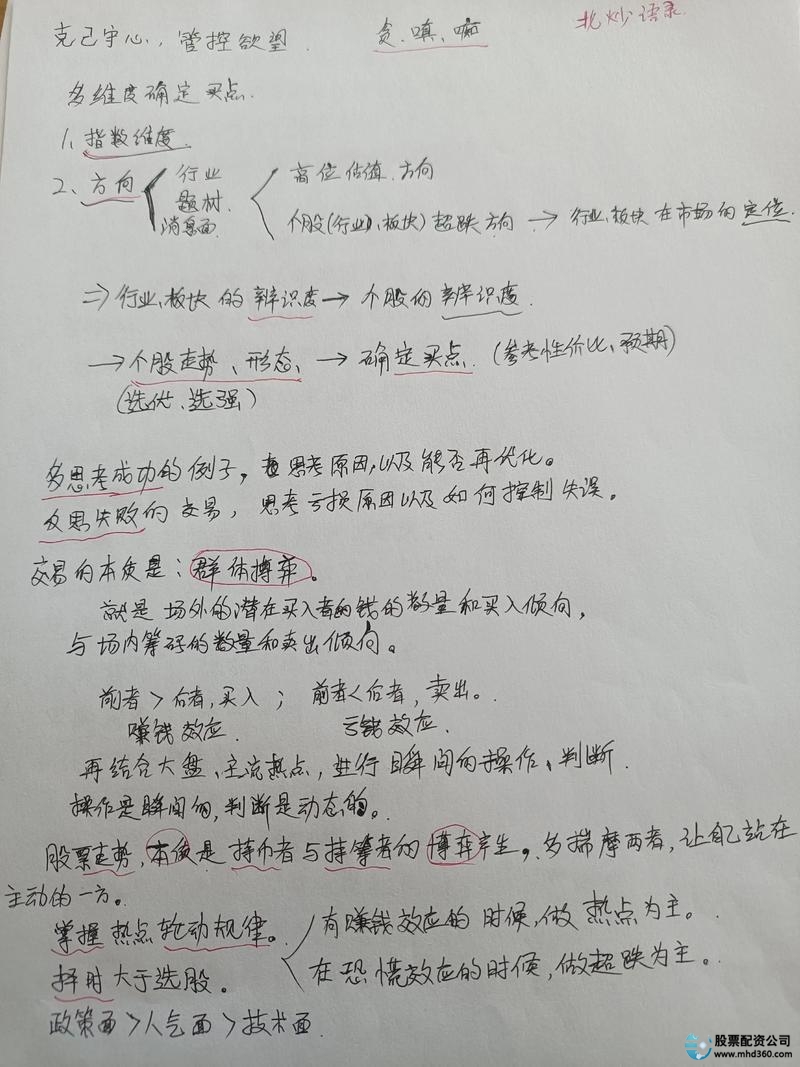 北炒语录
克己守心，管控欲望. 贪、嗔、痴
多维度确定买点.
1、指数维度.
2、方向 行业 题材. 消息面 高位估值.方向
个股(行业、板块)超跌方向 → 行业、板块在市场的定位.
⇒行业、板块的辨识度→个股的辨识度.
→个股走势、形态、→确定买点.(参考性价比、预期)
(选优、选强)
多思考成功的例子，思考原因,以及能否再优化。
反思失败的交易，思考亏损原因以及如何控制失误。
交易的本质是：群体博弈。
就是场外的潜在买入者的钱的数量和买入倾向，
与场内筹码的数量和卖出倾向。
前者>后者,买入； 前者<后者，卖出。
赚钱效应. 亏钱效应.
再结合大盘、主流热点，进行瞬间的操作、判断.
操作是瞬间的,判断是动态的。
股票走势,本质是持币者与持筹者的博弈产生。多揣摩两者,让自己站在
主动的一方。
掌握热点轮动规律。 有赚钱效应的时候,做热点为主。
择时大于选股。 在恐慌效应的时候,做超跌为主。
政策面>人气面>技术面.
股票配资公司
www.mhd360.com